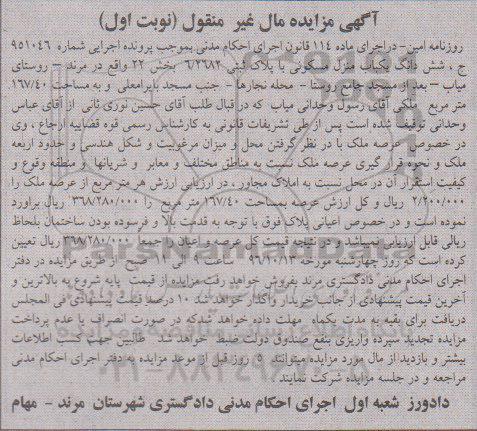 آگهی مزایده مال غیر منقول (نوبت اول)
روزنامه امین- دراجرای ماده ۱۱۴ قانون اجرای احکام مدنی بموجب پرونده اجرایی شماره ۹۵۱۰۴۶
ج ، شش دانگ یک منزل مسکونی با پلاک ثبتی ۶/۲۶۸۲ بخش ۲۲ واقع در مرند – روستای
میاب – بعد از مسجد جامع روستا – محله نجارها – جنب مسجد بایرامعلی و به مساحت ۱۶۷/۴۰
متر مربع ملکی آقای رسول وحدانی میاب که در قبال طلب آقای حسین نوری ثانی از آقای عباس
وحدانی توقیف شده است پس از طی تشریفات قانونی به کارشناس رسمی قوه قضاییه ارجاع ، وی
در خصوص عرصه ملک با در نظر گرفتن محل و میزان مرغوبیت و شکل هندسی و حدود اربعه
ملک و نحوه قرار گیری عرصه ملک نسبت به مناطق مختلف و معابر و شریانها و منطقه وقوع و
کیفیت استقرار آن در محل نسبت به املاک مجاور ، در ارزیابی ارزش هر متر مربع از عرصه ملک را
۲/۲۰۰/۰۰۰ ریال و کل ارزش عرصه بمساحت ۱۶۷/۴۰ متر مربع را ۳۶۸/۲۸۰/۰۰۰ ریال براورد
نموده است و در خصوص اعیانی پلاک فوق با توجه به قدمت بالا و فرسوده بودن ساختمان بلحاظ
ریالی قابل ارزیابی نمیباشد و در نتیجه قیمت کل عرصه و اعیان را جمعاً ۳۶۸/۲۸۰/۰۰۰ ریال تعیین
کرده است که روز چهارشنبه مورخه ۹۶/۱۰/۱۳ ساعت ۱۰ الی ۱۱ صبح از طریق مزایده در دفتر
اجرای احکام مدنی دادگستری مرند بفروش خواهد رفت مزایده از قیمت پایه شروع به بالاترین و
آخرین قیمت پیشنهادی از جانب خریدار واگذار خواهد شد ۱۰ درصد قیمت پیشنهادی فی المجلس
دریافت برای بقیه به مدت یکماه مهلت داده خواهد شدکه در صورت انصراف یا عدم پرداخت
مزایده تجدید سپرده واریزی بنفع صندوق دولت ضبط خواهد شد طالبین جهت کسب اطلاعات
بیشتر و بازدید از مال مورد مزایده میتوانند ۵ روز قبل از موعد مزایده به دفتر اجرای احکام مدنی
مراجعه و در جلسه مزایده شرکت نمایند .
دادورز شعبه اول اجرای احکام مدنی دادگستری شهرستان مرند – مهام
ParsNamadData
پایگاه اطلاع رسانی مناقصه و مزایده
۰۲۱-۸۸۳۴۹۶۷۰-۵